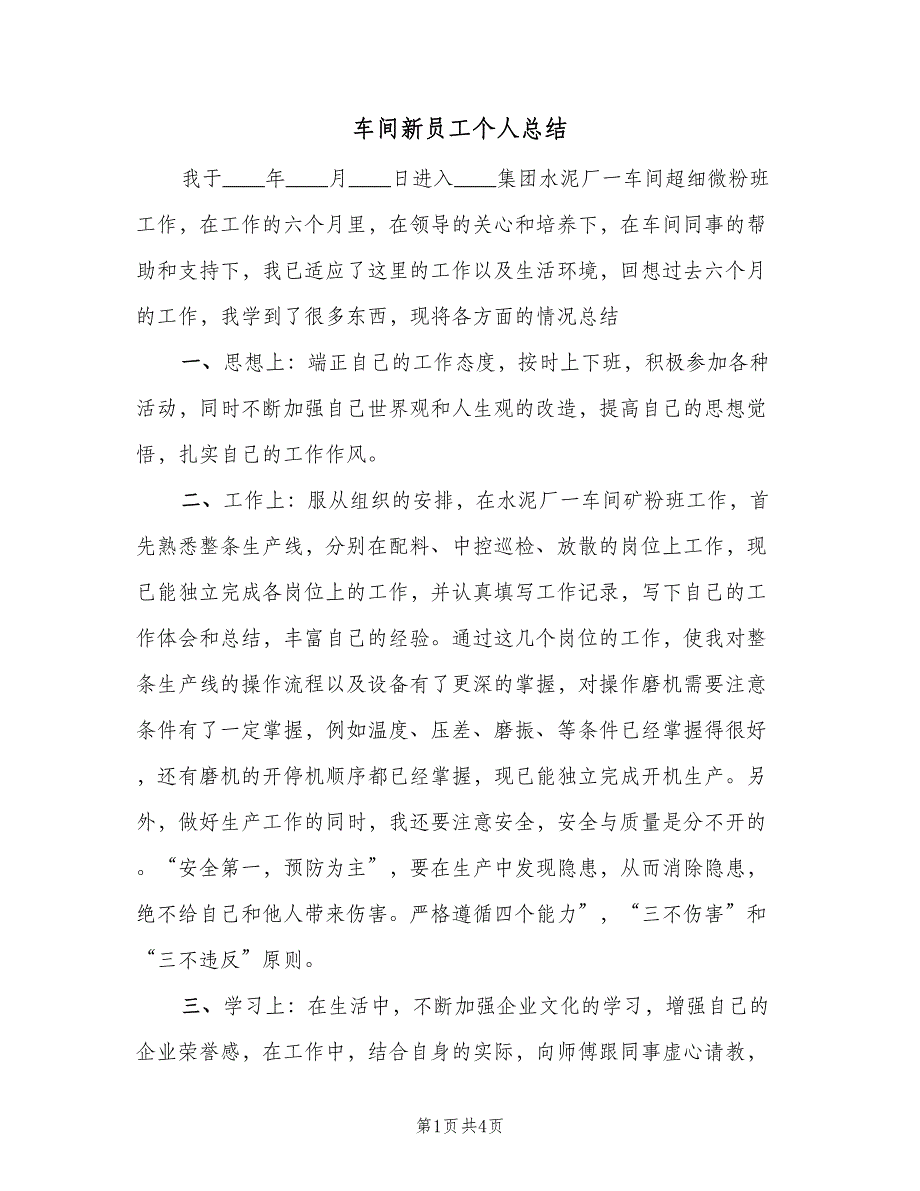 车间新员工个人总结
我于____年____月____日进入____集团水泥厂一车间超细微粉班
工作，在工作的六个月里，在领导的关心和培养下，在车间同事的帮
助和支持下，我已适应了这里的工作以及生活环境，回想过去六个月
的工作，我学到了很多东西，现将各方面的情况总结
一、思想上：端正自己的工作态度，按时上下班，积极参加各种
活动，同时不断加强自己世界观和人生观的改造，提高自己的思想觉
悟，扎实自己的工作作风。
二、工作上：服从组织的安排，在水泥厂一车间矿粉班工作，首
先熟悉整条生产线，分别在配料、中控巡检、放散的岗位上工作，现
已能独立完成各岗位上的工作，并认真填写工作记录，写下自己的工
作体会和总结，丰富自己的经验。通过这几个岗位的工作，使我对整
条生产线的操作流程以及设备有了更深的掌握，对操作磨机需要注意
条件有了一定掌握，例如温度、压差、磨振、等条件已经掌握得很好
，还有磨机的开停机顺序都已经掌握，现已能独立完成开机生产。另
外，做好生产工作的同时，我还要注意安全，安全与质量是分不开的
。“安全第一，预防为主”，要在生产中发现隐患，从而消除隐患，
绝不给自己和他人带来伤害。严格遵循四个能力”，“三不伤害”和
“三不违反”原则。
三、学习上：在生活中，不断加强企业文化的学习，增强自己的
企业荣誉感，在工作中，结合自身的实际，向师傅跟同事虚心请教，
第1页共4页